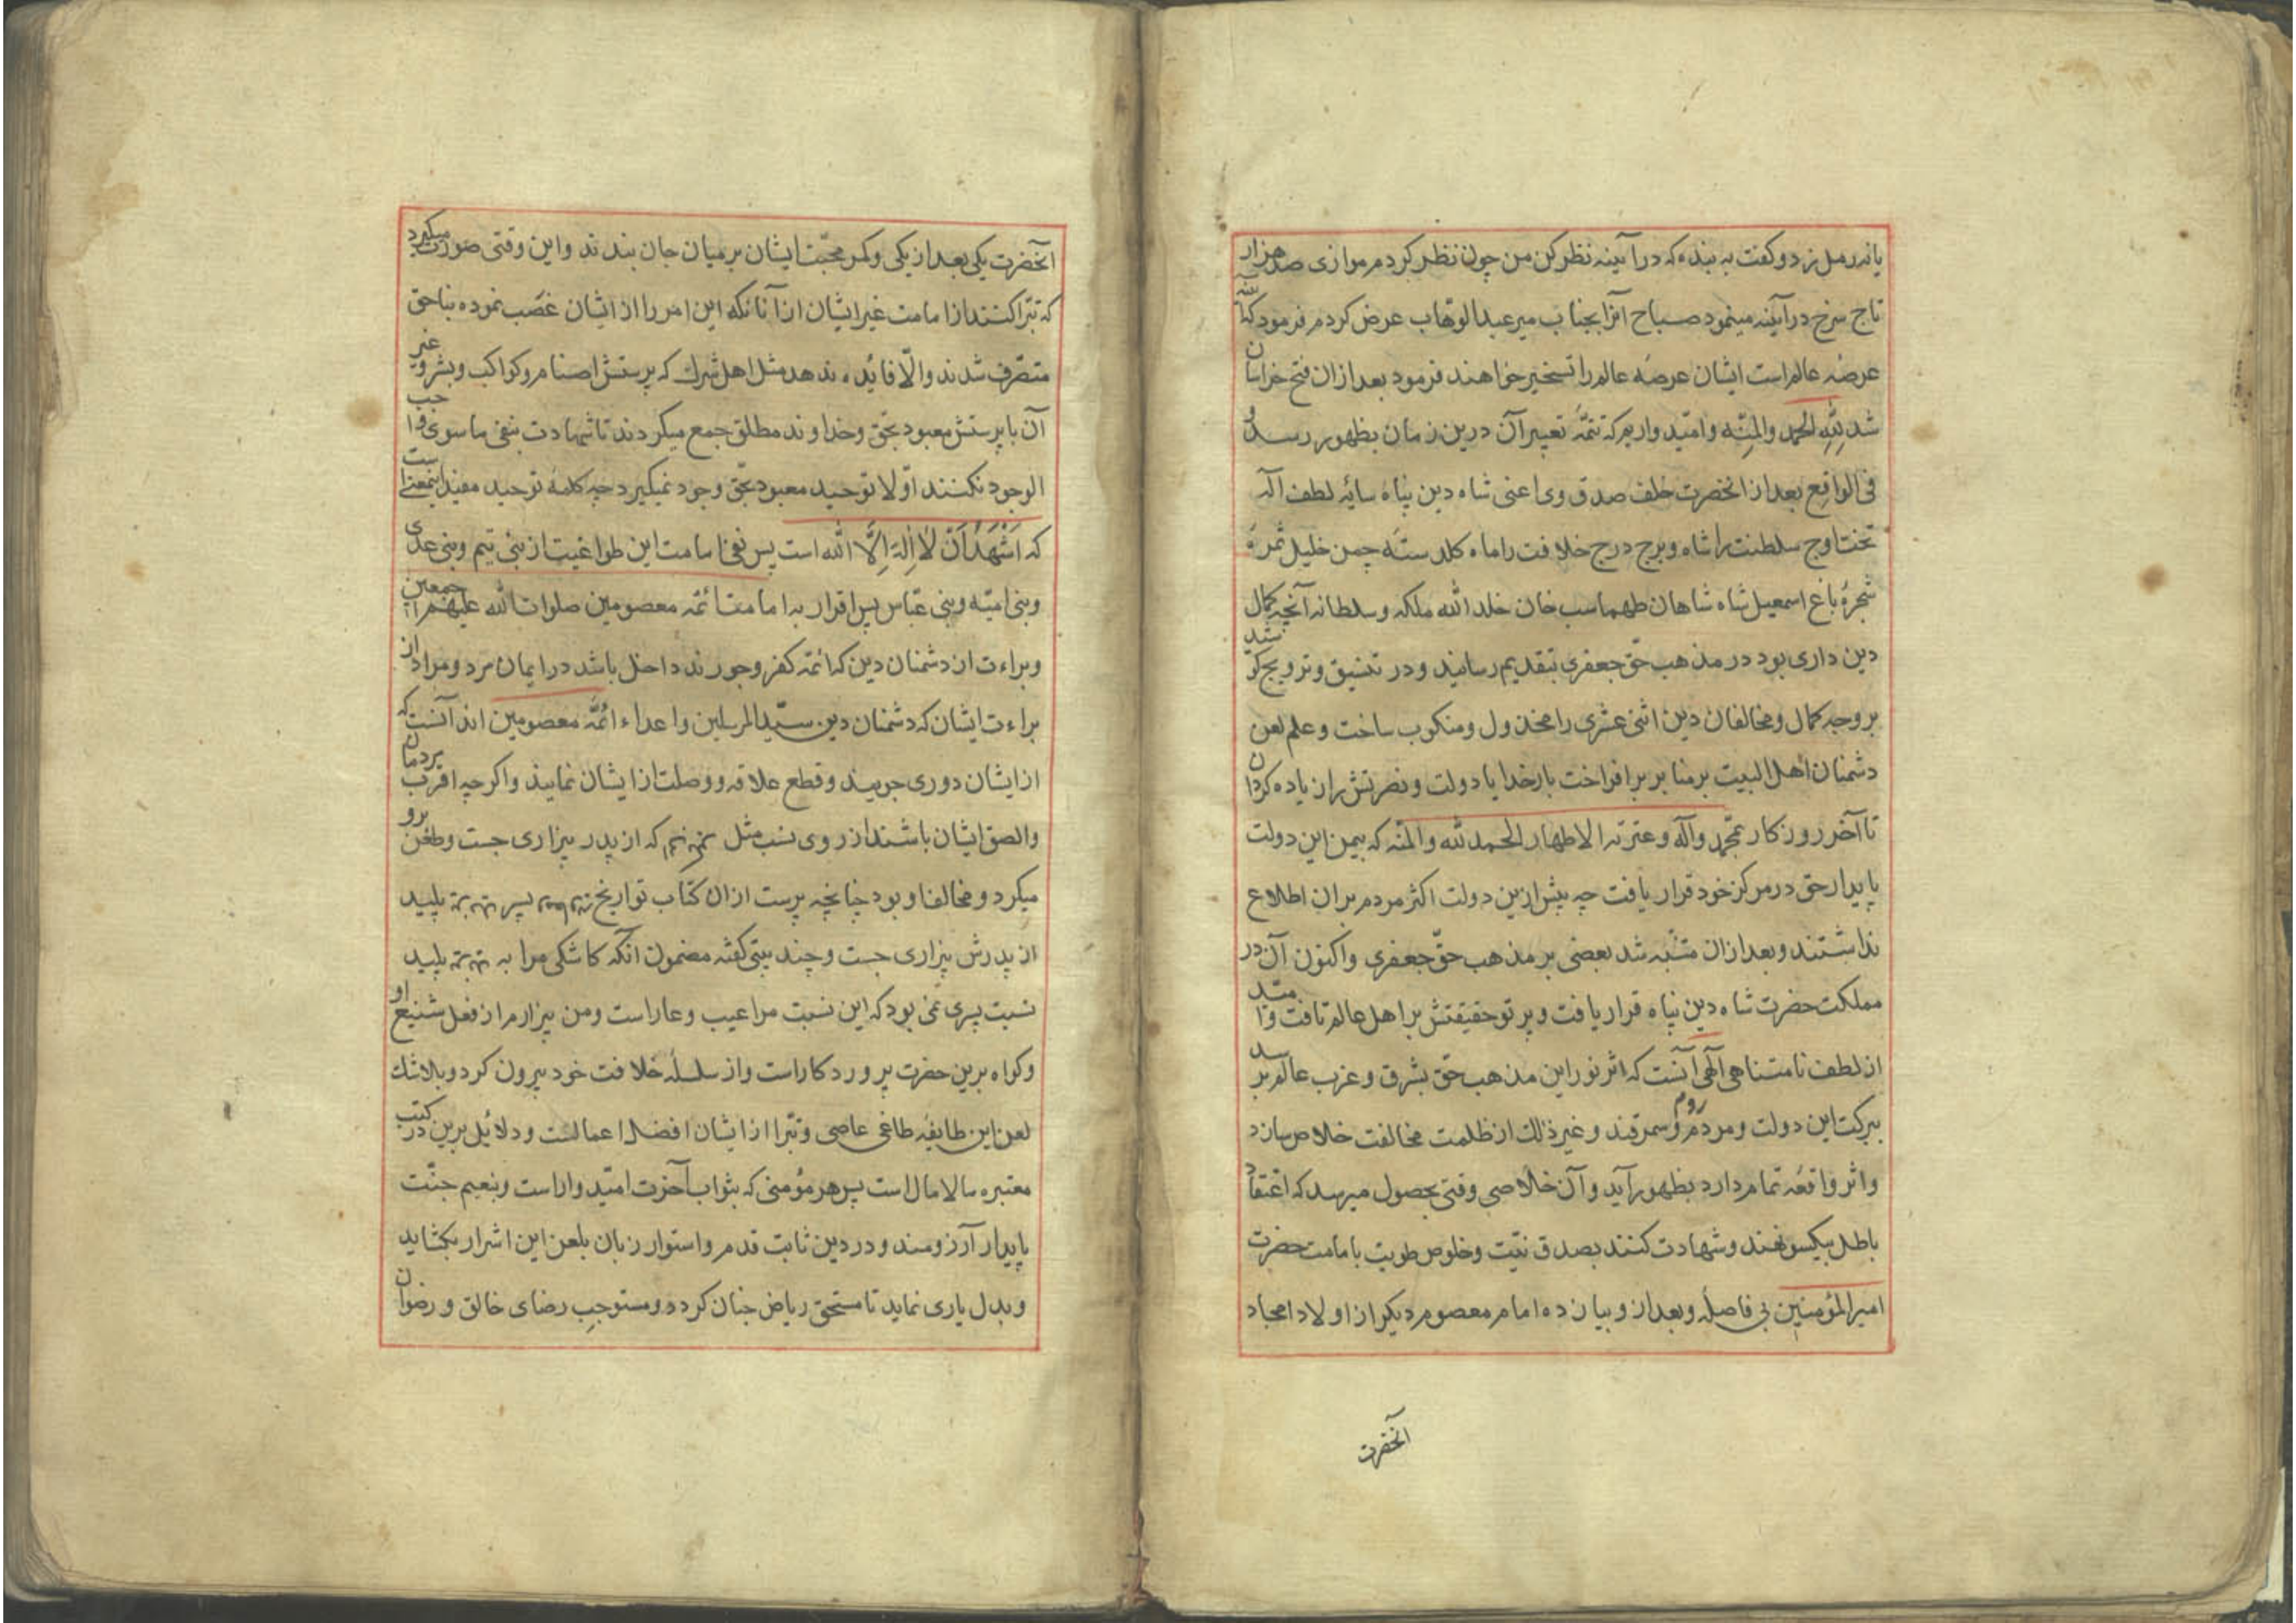 یانه رمل زد و کفت به بنده که در آیینه نظر کن من چون نظر کردم موازی صد هزار
تاج سرخ در آینه مینمود صباح آنرا بجناب میر عبدالوهاب عرض کردم فرمود که
عرصه عالم است ایشان عرصهٔ عالم را تسخیر خواهند فرمود بعد از ان فتح خراسان
شد لِلّٰهِ الحمد والمِنّه وامیّد واریم که تتمّهٔ تعبیر آن درین زمان بظهور رسد و
فی الواقع بعد از انحضرت خلف صدق وی اعنی شاه دین پناه سایهٔ لطف آله
تخت اوج سلطنت را شاه وبرج درج خلافت را ماه کلدستهٔ چمن خلیل ثمرهٔ
شجرهٔ باغ اسمعیل شاه شاهان طهماسب خان خلد الله ملکه وسلطانه آنچه کمال
دین داری بود در مذهب حقّ جعفری بتقدیم رسانید و در تنسیق و ترویج کوشید
بر وجه کمال ومخالفان دین اثنی عشری را مخذول ومنکوب ساخت و علم لعن
دشمنان اهل البیت بر منابر بر افراخت بار خدایا دولت ونصرتش را زیاده کردان
تا آخر روزکار بمحّمد وآله وعترته الاطهار الحمد لله والمنّه که بیمن این دولت
پایدار حق در مرکز خود قرار یافت چه پیش ازین دولت اکثر مردم بر ان اطلاع
نداشتند وبعد از ان متنّبه شد بعضی بر مذهب حقّ جعفری واکنون آن در
مملکت حضرت شاه دین پناه قرار یافت و پرتو حقیقتش بر اهل عالم تافت وامّید
از لطف نامتناهی آلهی آنست که اثر نور این مذهب حق بشرق وغرب عالم برسد
ببرکت این دولت ومردم روم وسمرقند و غیر ذلک از ظلمت مخالفت خلاص سازد
واثر واقعهٔ تمام دارد بظهور آید وآن خلاصی وقتی بحصول میرسد که اعتقاد
باطل بیکسو نهند وشهادت کنند بصدق نیّت وخلوص طویت بامامت حضرت
امیرالمؤمنین بی فاصله وبعد از و بیازده امام معصوم دیکر از اولاد امجاد
آنحضرت
آنحضرت یکی بعد از یکی وکمر محبّت ایشان بر میان جان بندند واین وقتی صورت میکیرد
که تبّرا کنند از امامت غیر ایشان از آنانکه این امر را از ایشان غصب نموده بناحق
متصّرف شدند والّا فایده ندهد مثل اهل شرک که پرستش اصنام وکواکب وبشر وغیر
آن با پرستش معبود بحّق وخداوند مطلق جمع میکردند تا شهادت بنفی ماسوی واجب
الوجود نکنند اوّلا توحید معبود بحّق وجود نمیکیرد چه کلمهٔ توحید مفید اینمعنی است
که اَشْهَدُ اَنْ لَا اِلٰهَ اِلَّا الله است پس نفی امامت این طواغیت از بنی تیم وبنی عدی
وبنی امیّه وبنی عبّاس پس اقرار به امامت ائمّه معصومین صلوات الله علیهم اجمعین
وبراءت از دشمنان دین که ائمّه کفر وجورند داخل باشد در ایمان مرد ومراد از
براءت ایشان که دشمنان دین سیّد المرسلین واعداء ائمّهٔ معصومین اند آنست که
از ایشان دوری جویند وقطع علاقه ووصلت از ایشان نمایند واکر چه اقرب مردمان
والصق ایشان باشند از روی نسب مثل که از پدر بیزاری جست وطعن برو
میکرد ومخالف او بود چنانچه پرست ازان کتاب تواریخ پسر پلید
از پدرش بیزاری جست وچند بیتی کفته مضمون آنکه کاشکی مرا به پلید
نسبت پسری نمی بود که این نسبت مرا عیب وعار است ومن بیزارم از فعل شنیع او
وکواه برین حضرت پروردکار است واز سلسلهٔ خلافت خود بیرون کرد وبلا شک
لعن این طایفهٔ طاغی عاصی وتبّرا از ایشان افضل اعمالست ودلایل برین در کتب
معتبره مالامال است پس هر مؤمنی که بثواب آخرت امیّدوار است وبنعیم جنّت
پایدار آرزومند ودر دین ثابت قدم واستوار زبان بلعن این اشرار بکشاید
وبدل یاری نماید تا مستحق ریاض جنان کردد ومستوجبِ رضای خالق ورضوان